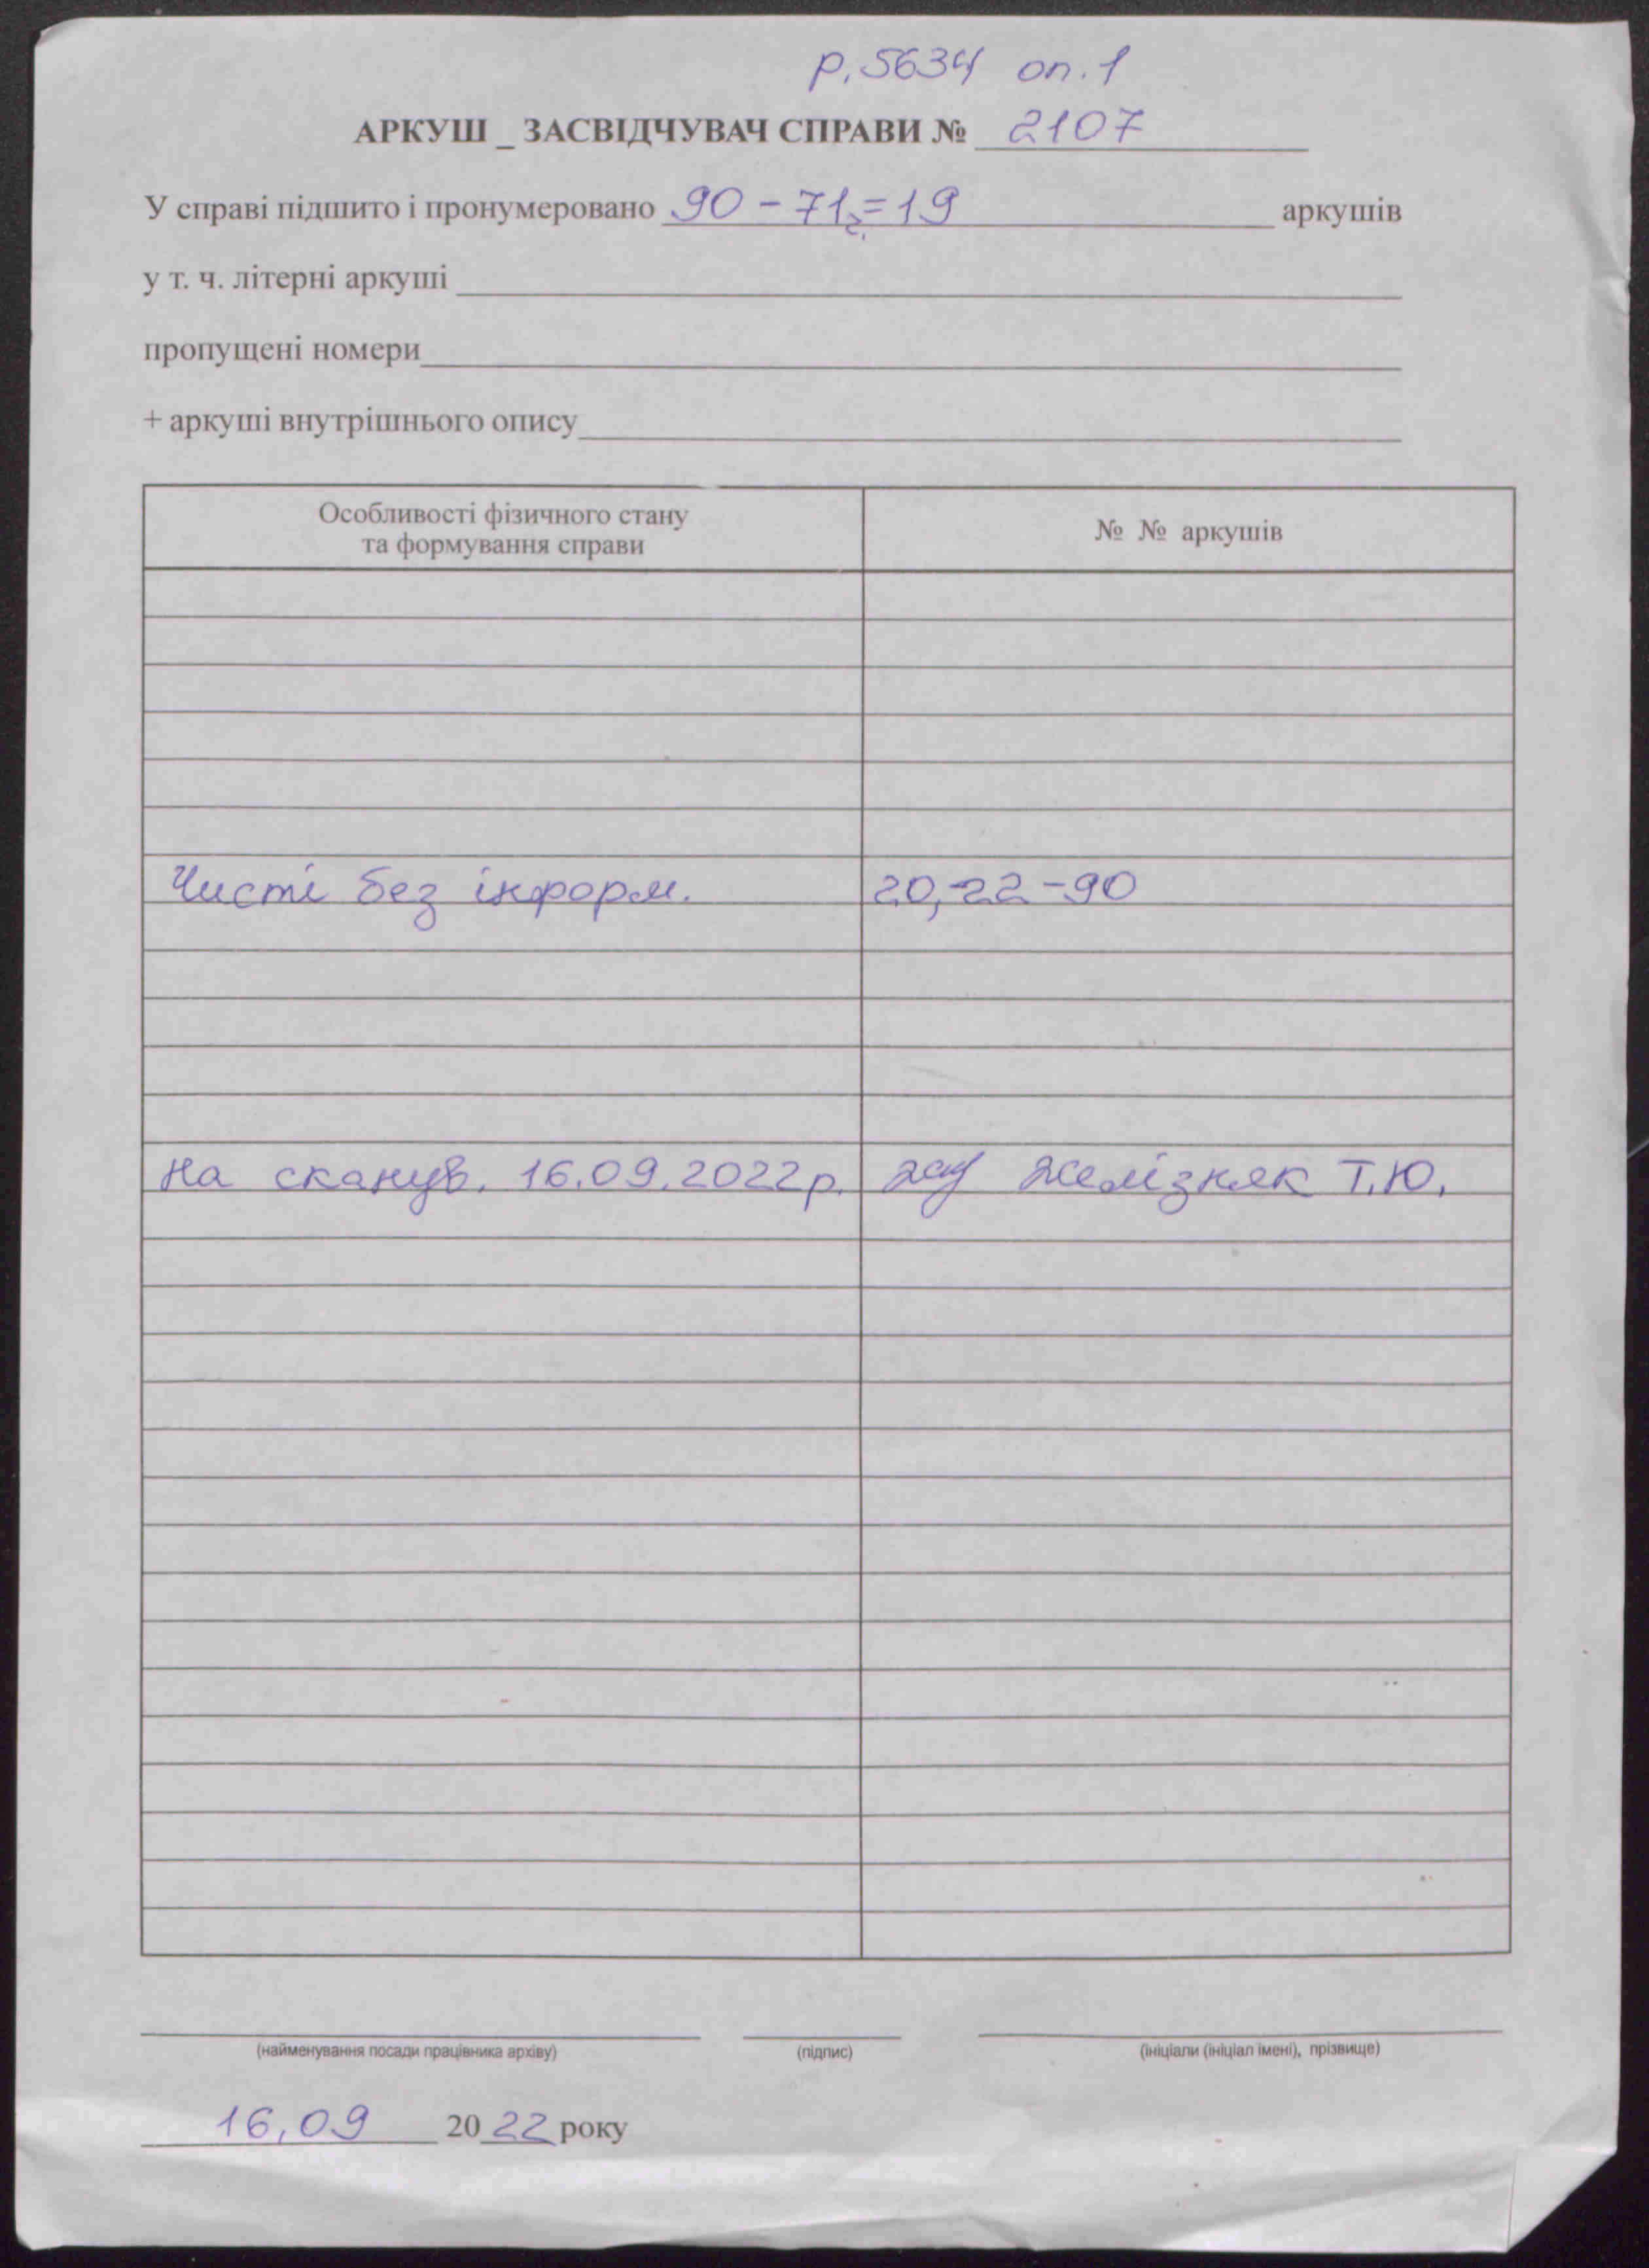 р. 5634 оп. 1
АРКУШ _ ЗАСВІДЧУВАЧ СПРАВИ № 2107
У справі підшито і пронумеровано 90 - 71 = 19 аркушів
у т. ч. літерні аркуші
пропущені номери
+ аркуші внутрішнього опису
Особливості фізичного стану
та формування справи
№ № аркушів
Чисті без інформ. 20, 22 - 90
На сканув. 16.09.2022р. Желізняк Т.Ю.
(найменування посади працівника архіву) (підпис) (ініціали (ініціал імені), прізвище)
16.09 2022 року